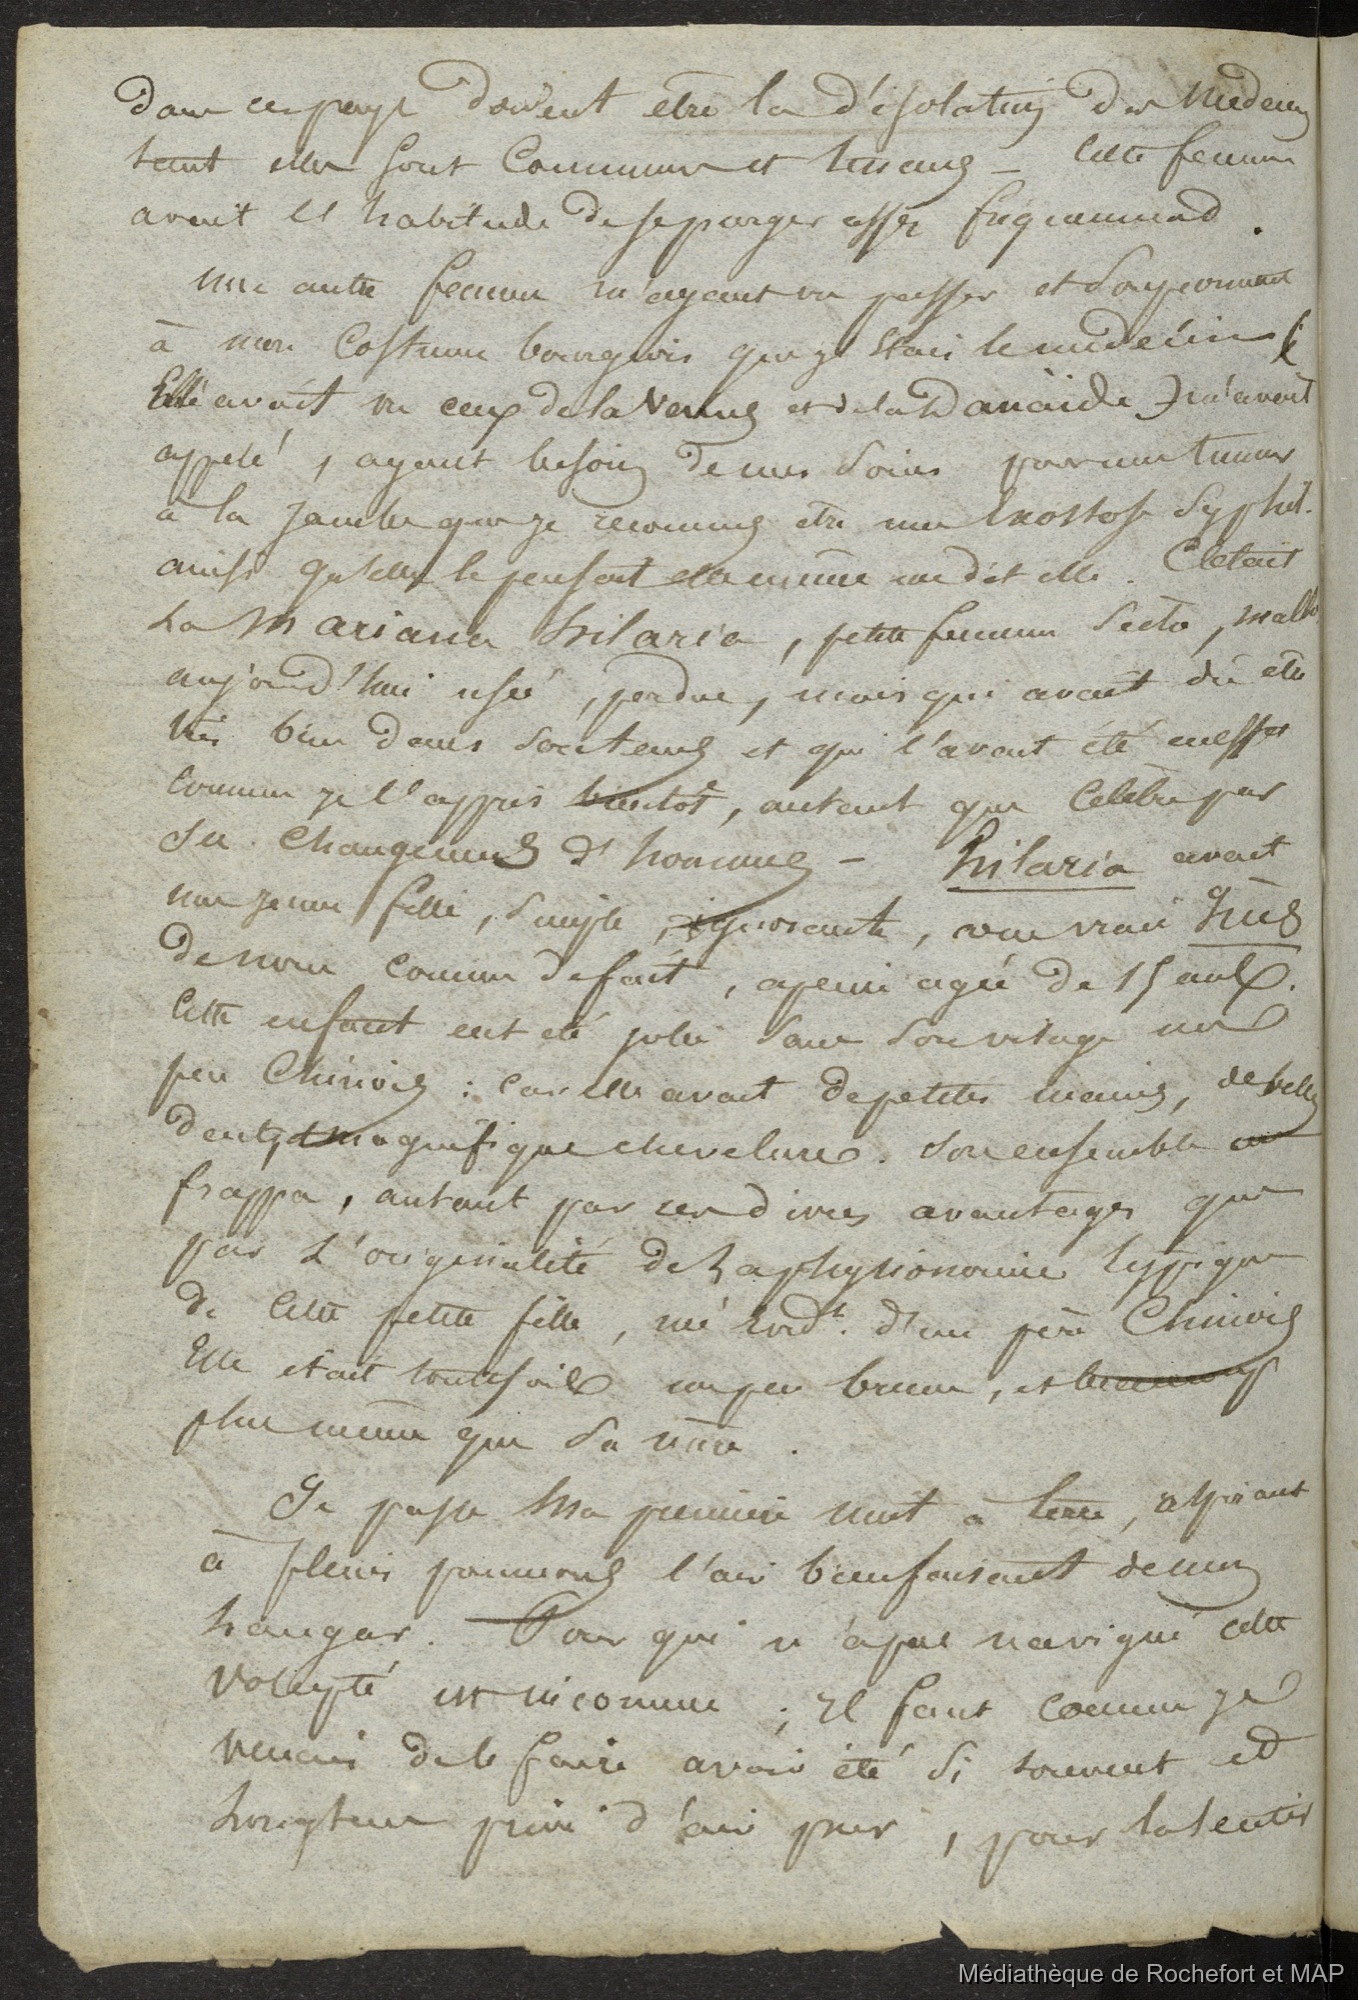 dans ces pays doivent etre la d'ésolation des Medecins
tant elles sont Communes et tenaces _ Cette femme
avait l'habitude de se purger assez fréquemment.
une autre femme m'ayant vu passer et Soupçonnant
à mon Costume bourgeois que j'étais le medecin (
Elle avait vu ceux de la Venus et de la Danaïde) m'avait
appelé, ayant besoin de mes Soins pour une tumeur
à la Jambe que je reconnus etre une Exostose Syphil.
ainsi qu'elle le pensait elle même me dit elle. C'était
La Mariana hilaria, petite femme
aujourd'hui usée, perdue, mais qui avait dû etre
très bien dans Son tems et qui l'avait été en effet
Comme je l'appris bientôt, autant que Célèbre par
Ses Changemens d'hommes – hilaria avait
une jeune fille, Simple, ignorante, une vraie
de nom comme de fait, a peine agée de 15 ans.
Cette enfant eut été jolie Sans Son visage un
peu Chinois : Car elle avait de petites mains, de belles
dents, et magnifique chevelure. Son ensemble me
frappa, autant par ces divers avantages que
par L'originalité de La physionomie typique
de Cette petite fille, née Evid.t d'un père Chinois
Elle etait toutefois un peu brune, et beaucoup
plus même que Sa mère.
Je passe Ma première nuit à terre, aspirant
à pleins poumons l'air bienfaisant de mon
hangar. Pour qui n'a pas navigué cette
Volupté est inconnue ; Il faut Comme je
venais de le faire avoir été Si souvent et
Longtems privé d'air pur, pour la sentir
Médiathèque de Rochefort et MAP